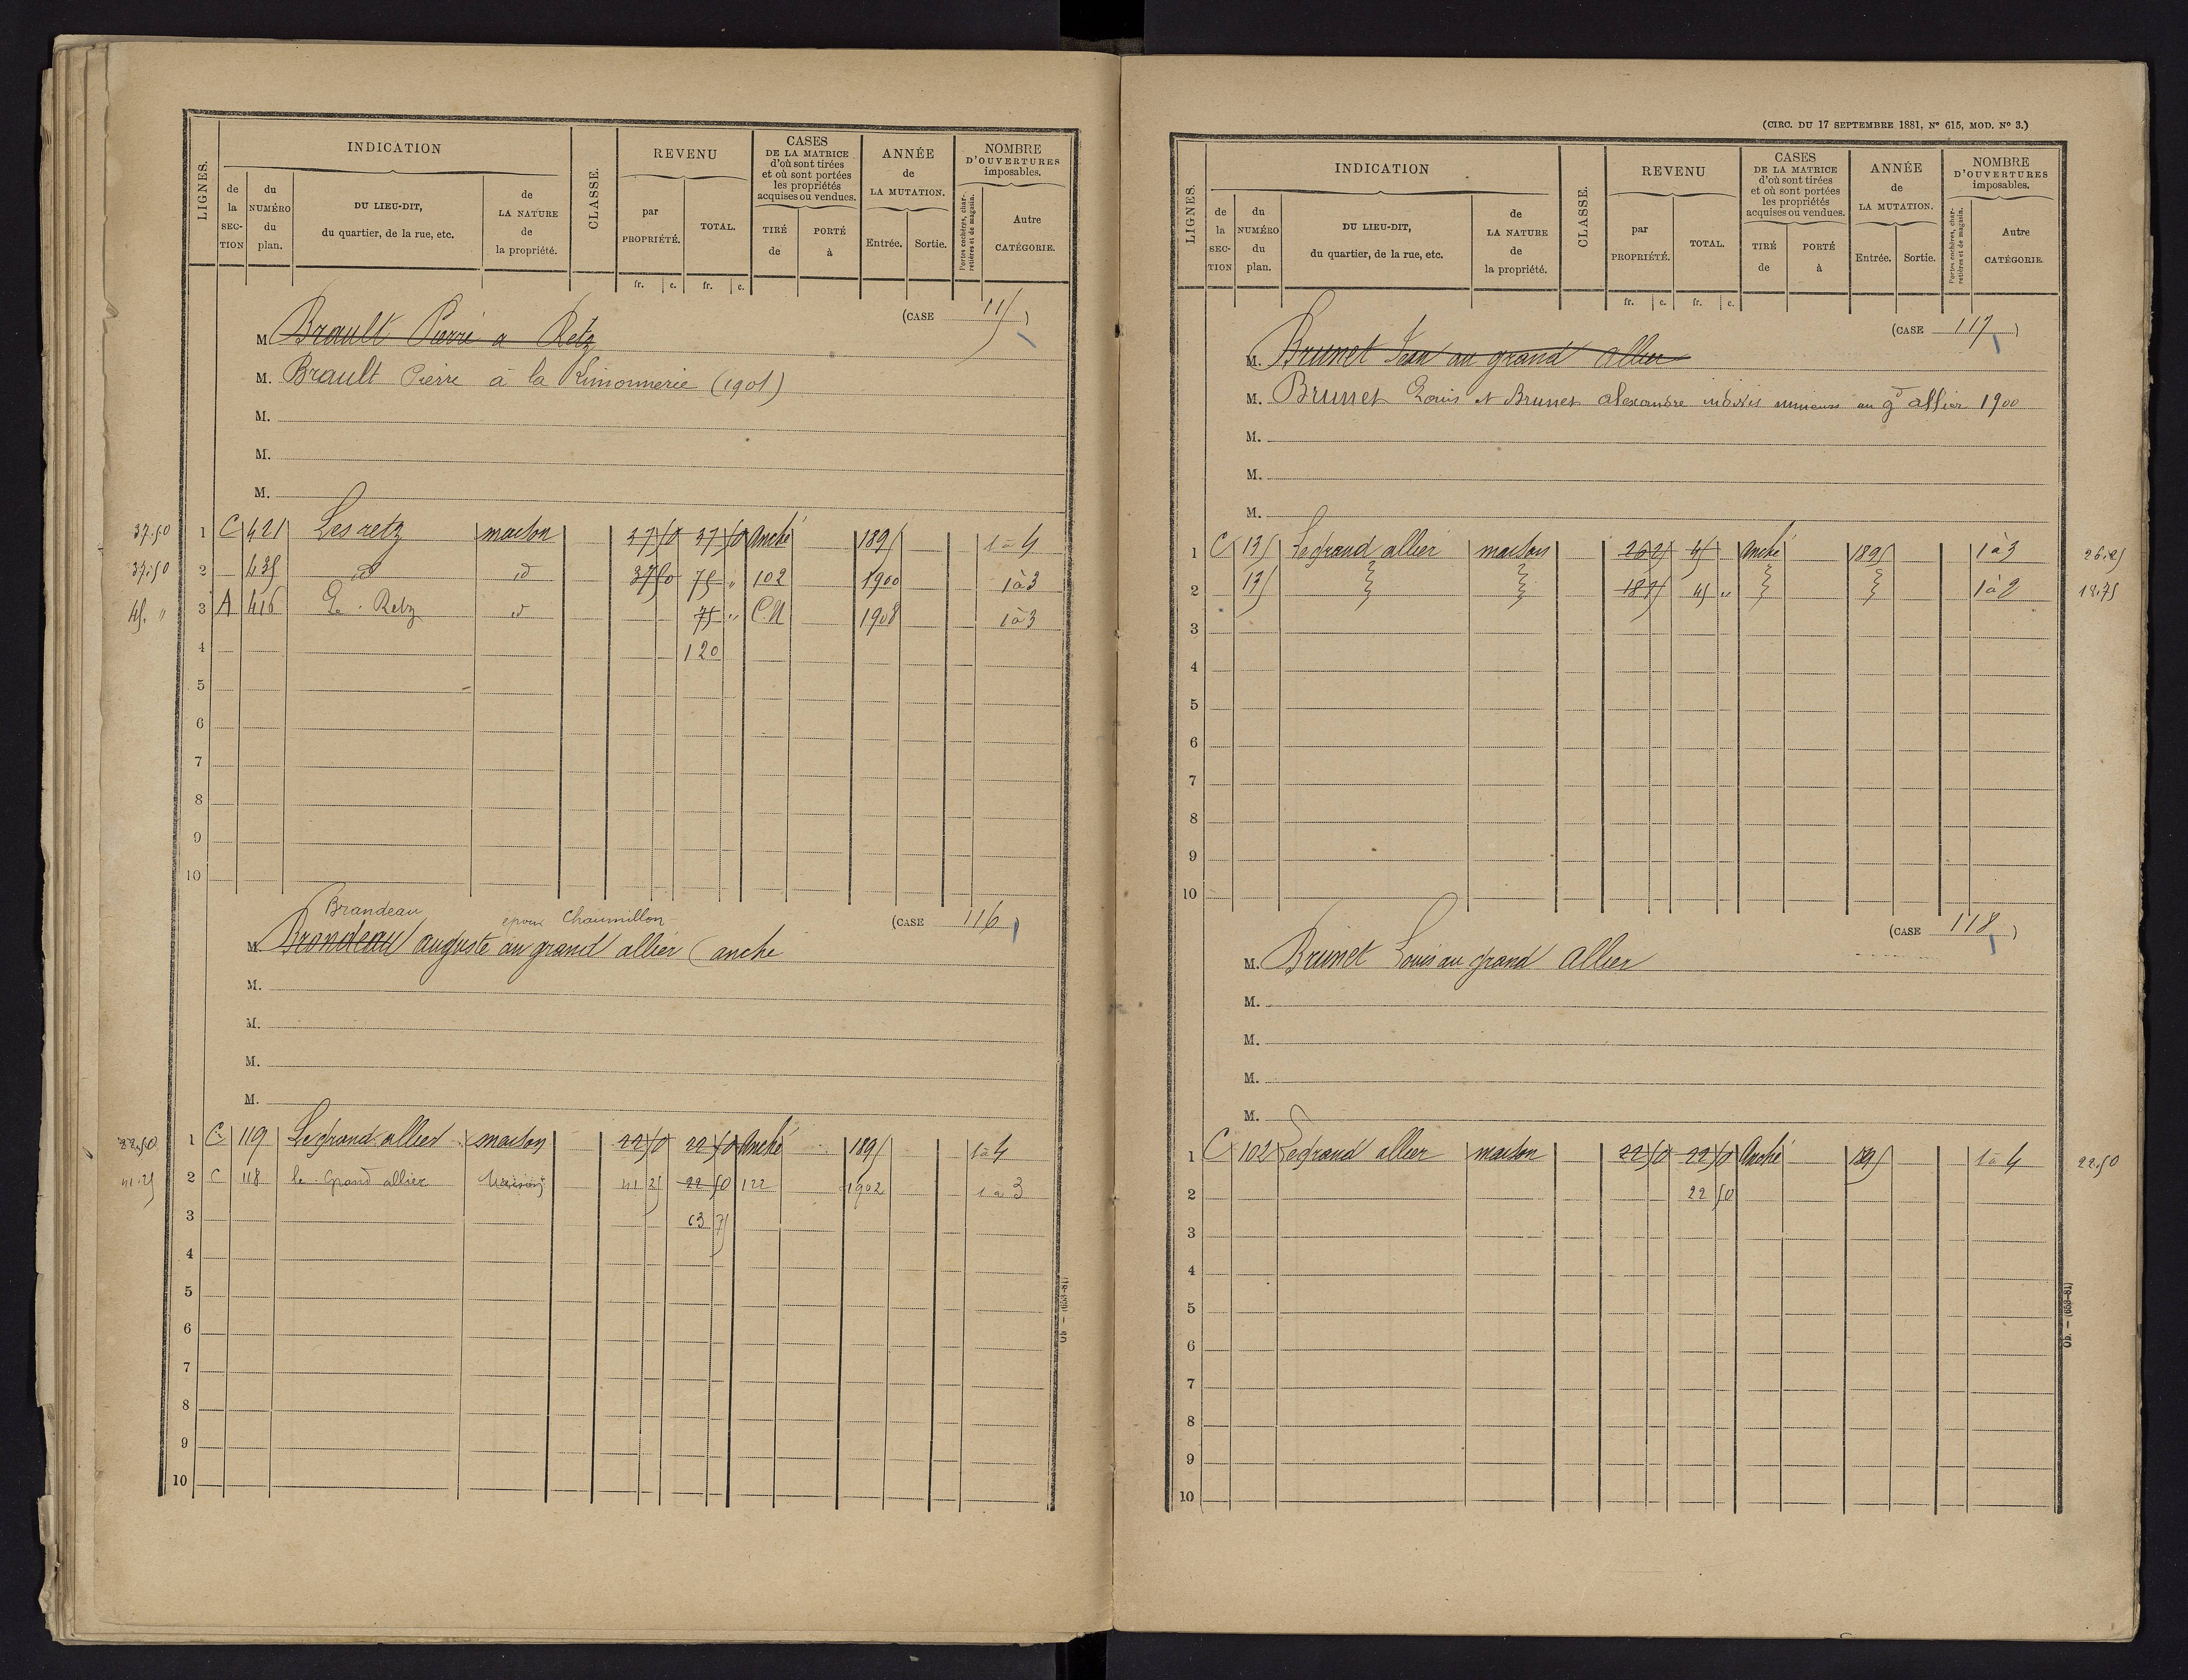 LIGNES.
INDICATION
de la SECTION
du NUMÉRO du plan.
DU LIEU-DIT, du quartier, de la rue, etc.
de LA NATURE de la propriété.
CLASSE.
REVENU
par PROPRIÉTÉ.
TOTAL.
CASES DE LA MATRICE d'où sont tirées et où sont portées les propriétés acquises ou vendues.
TIRÉ de
PORTÉ à
ANNÉE de LA MUTATION.
Entrée.
Sortie.
NOMBRE D'OUVERTURES imposables.
Portes cochères, charretières et de magasin.
Autre CATÉGORIE.
fr. c. fr. c.
(CASE 115)
M. Brault Pierre a Retz
M. Brault Pierre à la Rimonnerie (1901)
M.
M.
M.
37.50 1 C 421 Les retz maison 37 50 37 50 Anché 1895 1 à 4
37.50 2 435 id id 37 50 75 " 102 1900 1 à 3
45. " 3 A 416 Le Retz id 75 " C.N 1908 1 à 3
4 120
5
6
7
8
9
10
Brandeau epoux Chaumillon
(CASE 116)
M. Brondeau auguste au grand allier (anche
M.
M.
M.
M.
22.50 1 C 119 Le grand allier maison 22 50 22 50 Anché 1895 1 à 4
41.25 2 C 118 le Grand allier Maison 41 25 22 50 122 1902 1 à 3
3 63 75
4
5
6
7
8
9
10
Ob. — (653-81)
(CIRC. DU 17 SEPTEMBRE 1881, N° 615, MOD. N° 3.)
LIGNES.
INDICATION
de la SECTION
du NUMÉRO du plan.
DU LIEU-DIT, du quartier, de la rue, etc.
de LA NATURE de la propriété.
CLASSE.
REVENU
par PROPRIÉTÉ.
TOTAL.
CASES DE LA MATRICE d'où sont tirées et où sont portées les propriétés acquises ou vendues.
TIRÉ de
PORTÉ à
ANNÉE de LA MUTATION.
Entrée.
Sortie.
NOMBRE D'OUVERTURES imposables.
Portes cochères, charretières et de magasin.
Autre CATÉGORIE.
fr. c. fr. c.
(CASE 117)
M. Brunet Jean au grand allier
M. Brunet Louis et Brunet alexandre indivis mineurs au gd allier 1900
M.
M.
M.
1 C 135 Le grand allier maison 26 25 45 Anché 1895 1 à 3 26.25
2 135 18 75 45 " 1 à 2 18.75
3
4
5
6
7
8
9
10
(CASE 118)
M. Brunet Louis au grand Allier
M.
M.
M.
M.
1 C 102 Le grand allier maison 22 50 22 50 Anché 1895 1 à 4 22.50
2 22 50
3
4
5
6
7
8
9
10
Ob. — (653-81)